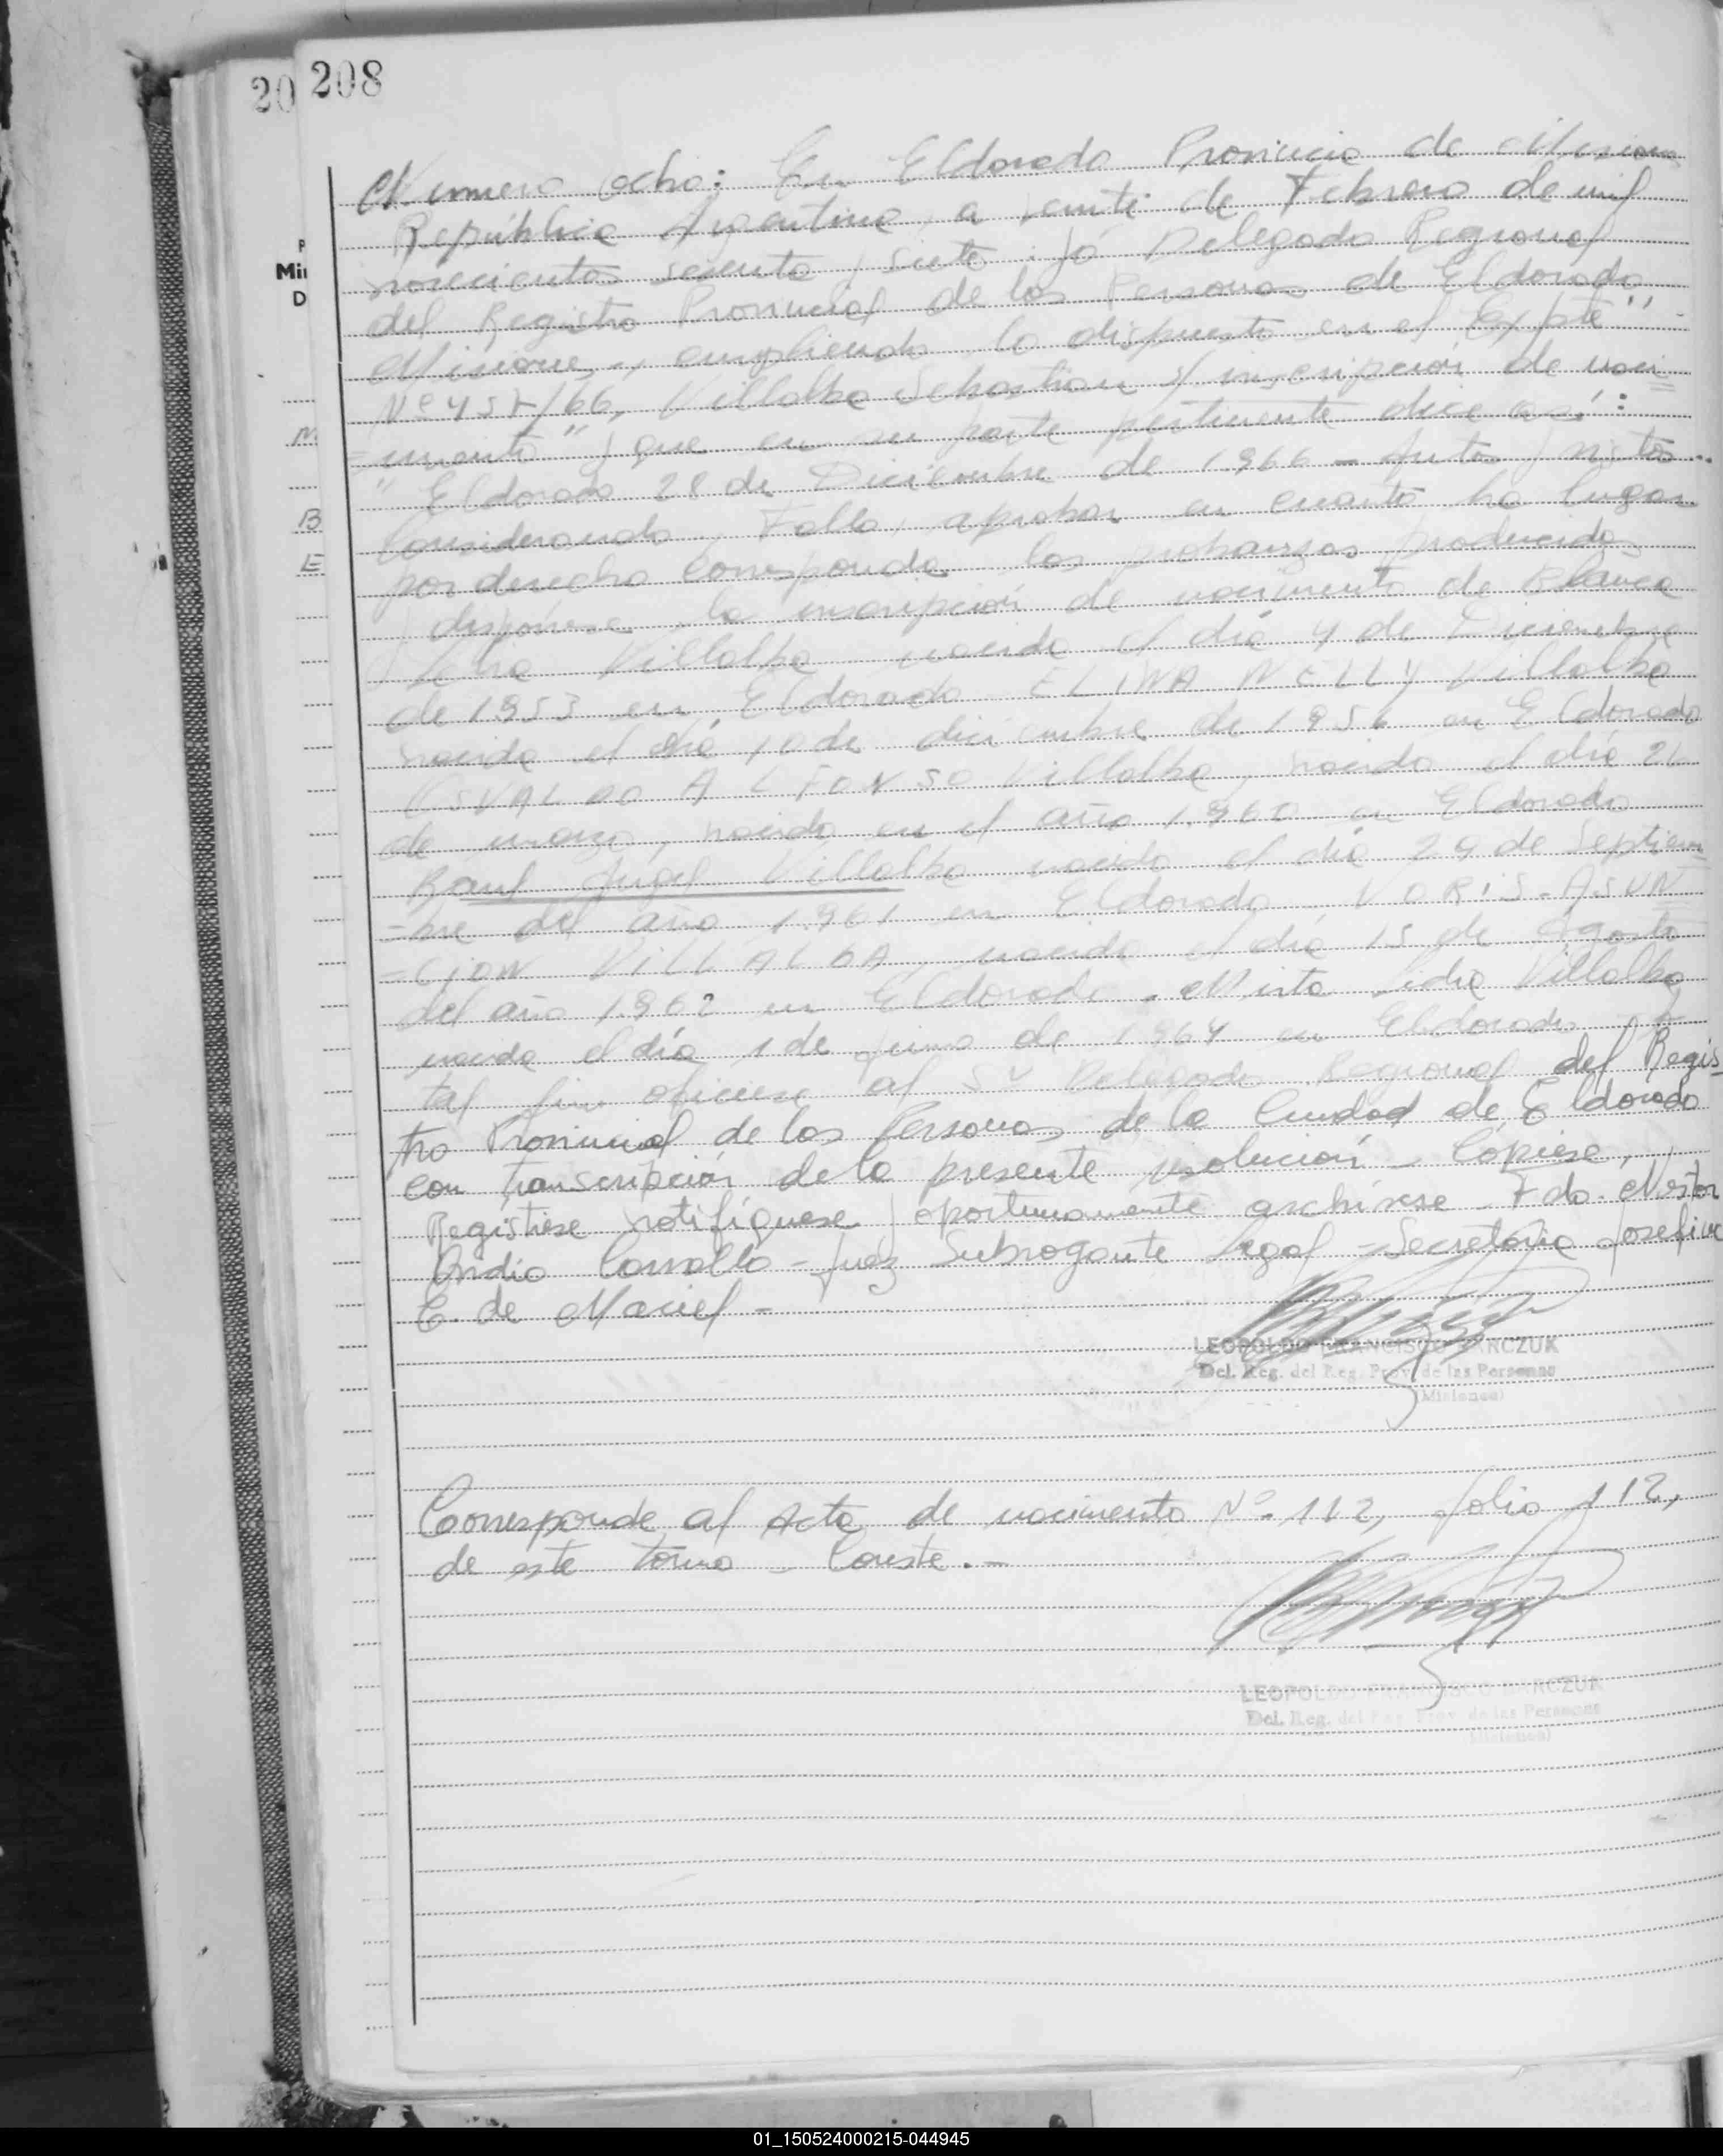 20 208
Numero ocho: En Eldorado Provincia de Misiones
República Argentina, a veinte de Febrero de mil
novecientos sesenta y siete: yo Delegado Regional
del Registro Provincial de las Personas de Eldorado
Misiones, cumpliendo lo dispuesto en el Expte "
Villalba Sebastian s/ inscripción de naci
=miento" y que en su parte pertinente dice así:
"Eldorado 28 de Diciembre de 1.966 - Autos y vistos...
Considerando, Fallo, aprobar en cuanto ha lugar
por derecho corresponda las probanzas producidas
y dispónese la inscripción de nacimiento de Blanca
Villalba nacida el día 4 de Diciembre
de 1953 en Eldorado ELINA NELLY Villalba
nacida el día 10 de diciembre de 1956 en Eldorado
OSVALDO ALFONSO Villalba, nacido el día 26
de marzo, nacido en el año 1.960 en Eldorado
Raul Angel Villalba nacido el día 29 de Septiem
=bre del año 1.961 en Eldorado DORIS-ASUN
=CION VILLALBA, nacida el día 15 de Agosto
del año 1962 en Eldorado. Mirta Lidia Villalba
nacida el día 1 de Junio de 1964 en Eldorado A
tal fin oficiese al Sr Delegado Regional del Regis
tro Provincial de las Personas de la Ciudad de Eldorado
con transcripción de la presente resolución - Cópiese,
Registrese notifíquese y oportunamente archívese - Fdo. Nestor
Ordio Carvallo - Juez Subrogante Legal - Secretaria Josefina
C. de Maciel -
LEOPOLDO FRANCISCO
Del. Reg. del Reg. Prov. de las Personas
(Misiones)
Corresponde al Acta de nacimiento Nº. 112, folio 112,
de este tomo - Conste.-
LEOPOLDO FRANCISCO
Del. Reg. del Reg. Prov. de las Personas
(Misiones)
P
Mi
D
N
B
E
01_150524000215-044945